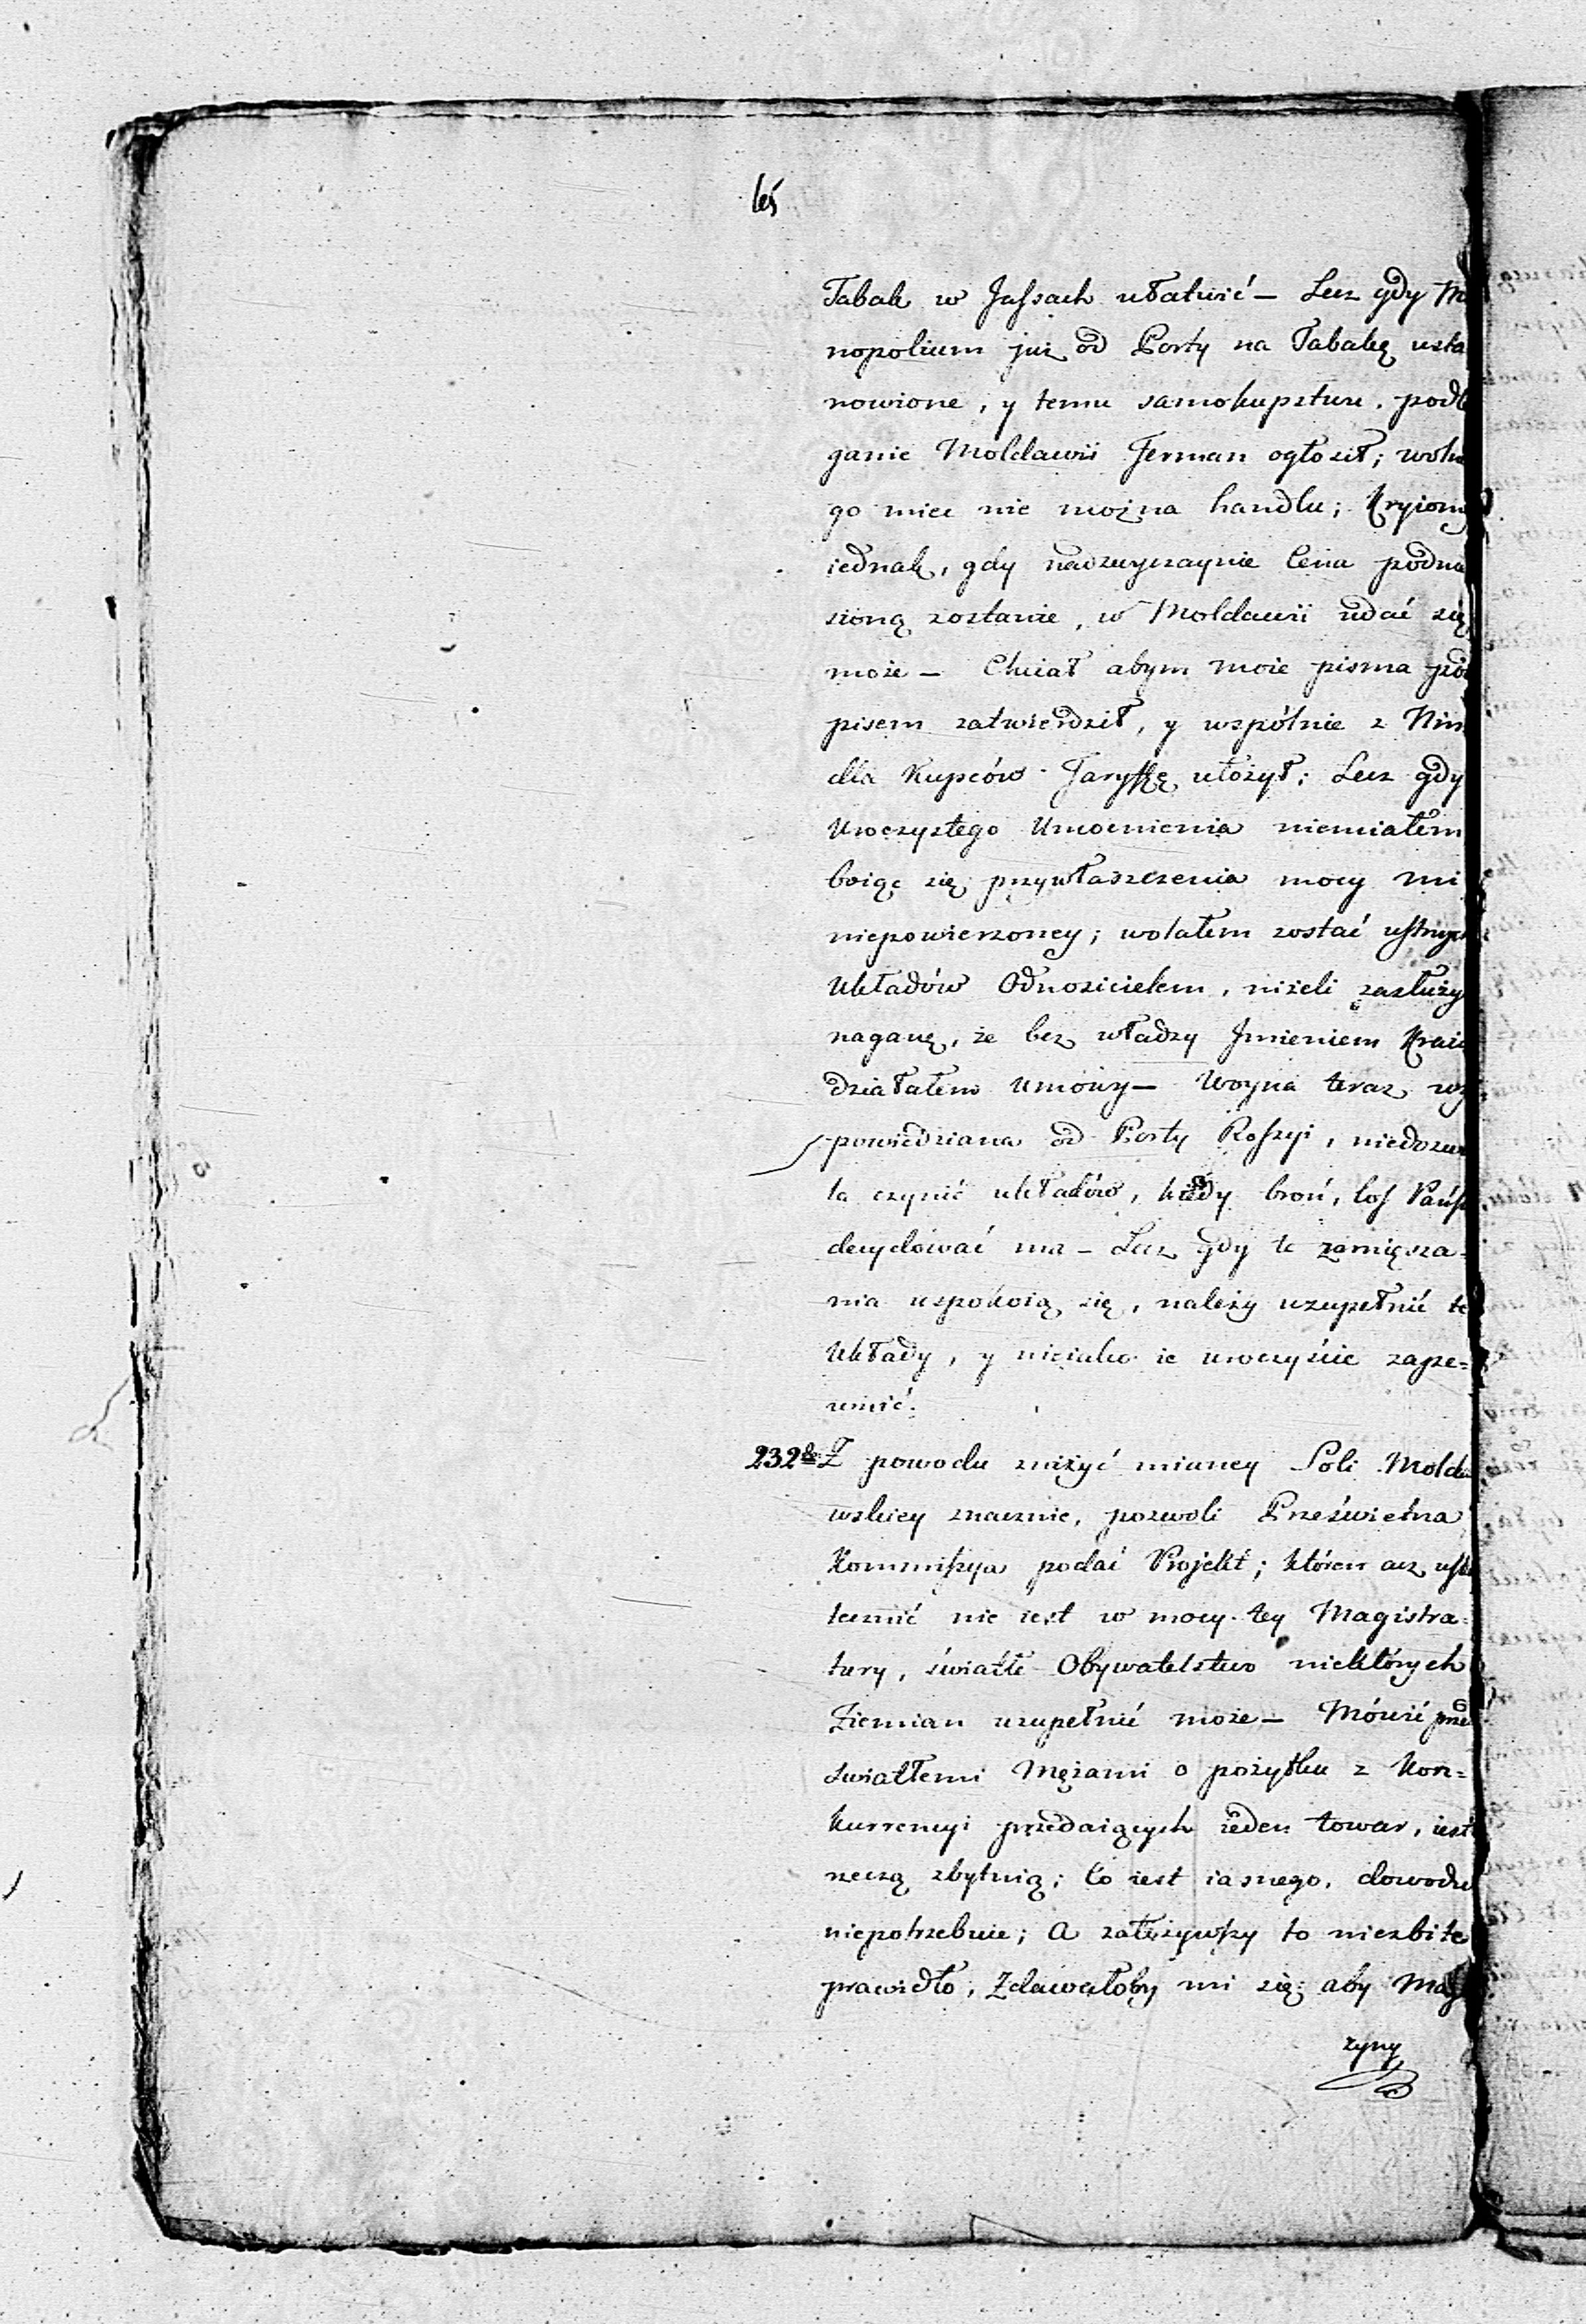 Tabak w Jassach ułatwić — Lecz gdy M
nopolium już od Porty na Tabakę usta
nowione, y temu samokupstwu podl
ganie Moldawii Ferman ogłosił; wolne
go miec nie można handlu; Kryiomy
iednak, gdy nadzwyczaynie Cena podnie
sioną zostanie, w Moldawii udać się
może — Chciał abym moie pisma pod
pisem zatwierdził, y wspólnie z Nim
dla Kupców Taryffę ułożył; Lecz gdy
Uroczystego Umocnienia niemiałem
boiąc się przywłaszczenia mocy mi
niepowierzoney; wolałem zostać ustnych
Układów Odnosicielem, niżeli zasłuży
naganę, że bez władzy Imieniem Kraiu
działałem Umowy — Woyna teraz wy
powiedziana od Porty Rossyi, niedozwa
la czynić układów, kiedy broń, los Państ
decydować ma — Lecz gdy te zamięsza=
nia uspokoią się, należy uzupełnić te
Układy, y nieiako ie uroczyście zape=
wnić.
232do Z powodu zniżyć mianey Soli Molda
wskiey znacznie, pozwoli Prześwietna
Kommissya podać Projekt; któren acz usku
tecznić nie iest w mocy tey Magistra=
tury, światłe Obywatelstwo niektórych
Ziemian uzupełnić może — Mówić przed
światłemi Mężami o pożytku z Kon=
kurrencyi przedaiących ieden towar, iest
rzeczą zbytnią; Co iest iasnego, dowodzę
niepotrzebnie; A założywszy to niezbite
prawidło, Zdawałoby mi się; aby Maga
zyny